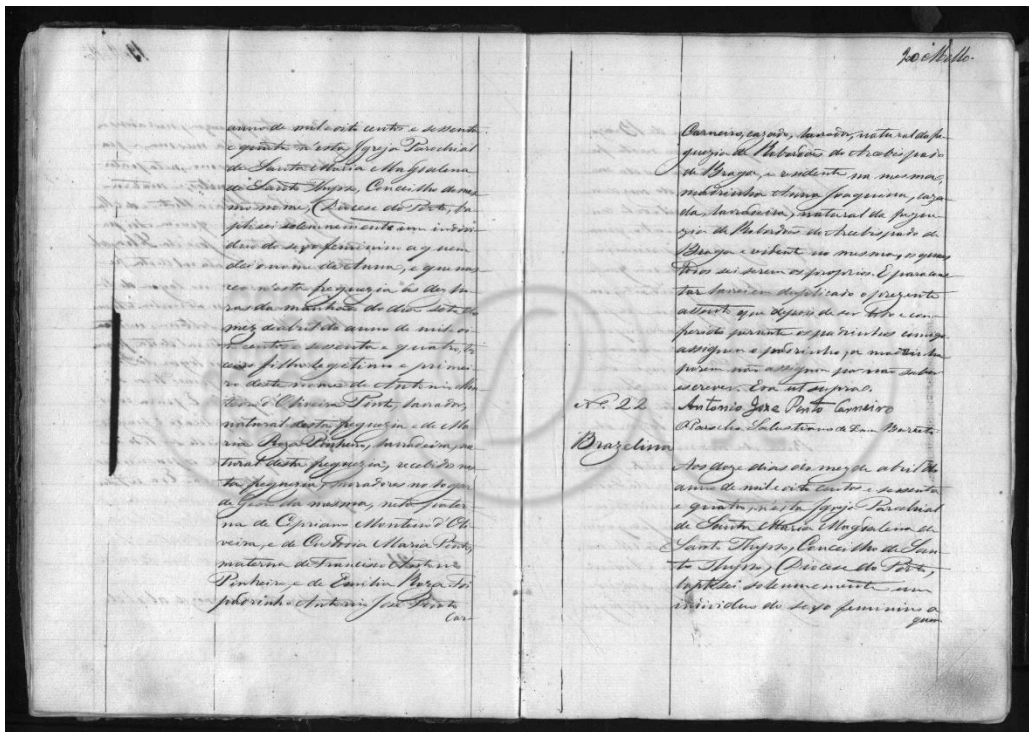 anno de mil e oito centos e sessenta
e quatro n'esta Igreja Parochial
de Santa Maria Magdalena
de Santo Thyrso, Concelho do mes
mo nome, Diocese do Porto, ba
ptisei solemnemente um indivi
duo do sexo feminino a quem
dei o nome de Anna, e que nas
ceo n'esta freguezia às dez ho
ras da manhã do dia sete do
mez de abril do anno de mil oi
to centos e sessenta e quatro, ter
ceiro filho legetimo e primei
ro deste nome de Antonio Mon
teiro d'Oliveira Pinto, lavrador,
natural desta freguezia e de Ma
ria Roza Pinheiro, lavradeira, na
tural desta freguezia, recebidos nes
ta freguezia, moradores no logar
de da mesma, neta pater
na de Cipriano Monteiro d'Oli
veira, e de Custodia Maria Pinto,
materna de Francisco Martins
Pinheiro, e de Emilia Roza. Foi
padrinho Antonio José Pinto
Car
20 Mello.
Carneiro, cazado, lavrador, natural da fre
guezia de Rebordões do Arcebispado
de Braga, e rezidente na mesma,
madrinha Anna Joaquina, caza
da, lavradeira, natural da fregue
zia de Rebordões do Arcebispado de
Braga e rezidente na mesma, os quaes
todos sei serem os proprios. E para cons
tar lavrei em duplicado o prezente
assento que depois de ser lido e con
ferido perante os padrinhos comigo
assignou o padrinho, a madrinha
porem não assignou por não saber
escrever. Era ut supra.
Antonio Joze Pinto Carneiro
O Parocho Barreto
N.º 22
Brazelina
Aos doze dias do mez de abril do
anno de mil e oito centos e sessenta
e quatro, nesta Igreja Parochial
de Santa Maria Magdalena de
Santo Thyrso, Concelho de San
to Thyrso, Diocese do Porto,
baptisei solemnemente um
individuo do sexo feminino a
quem